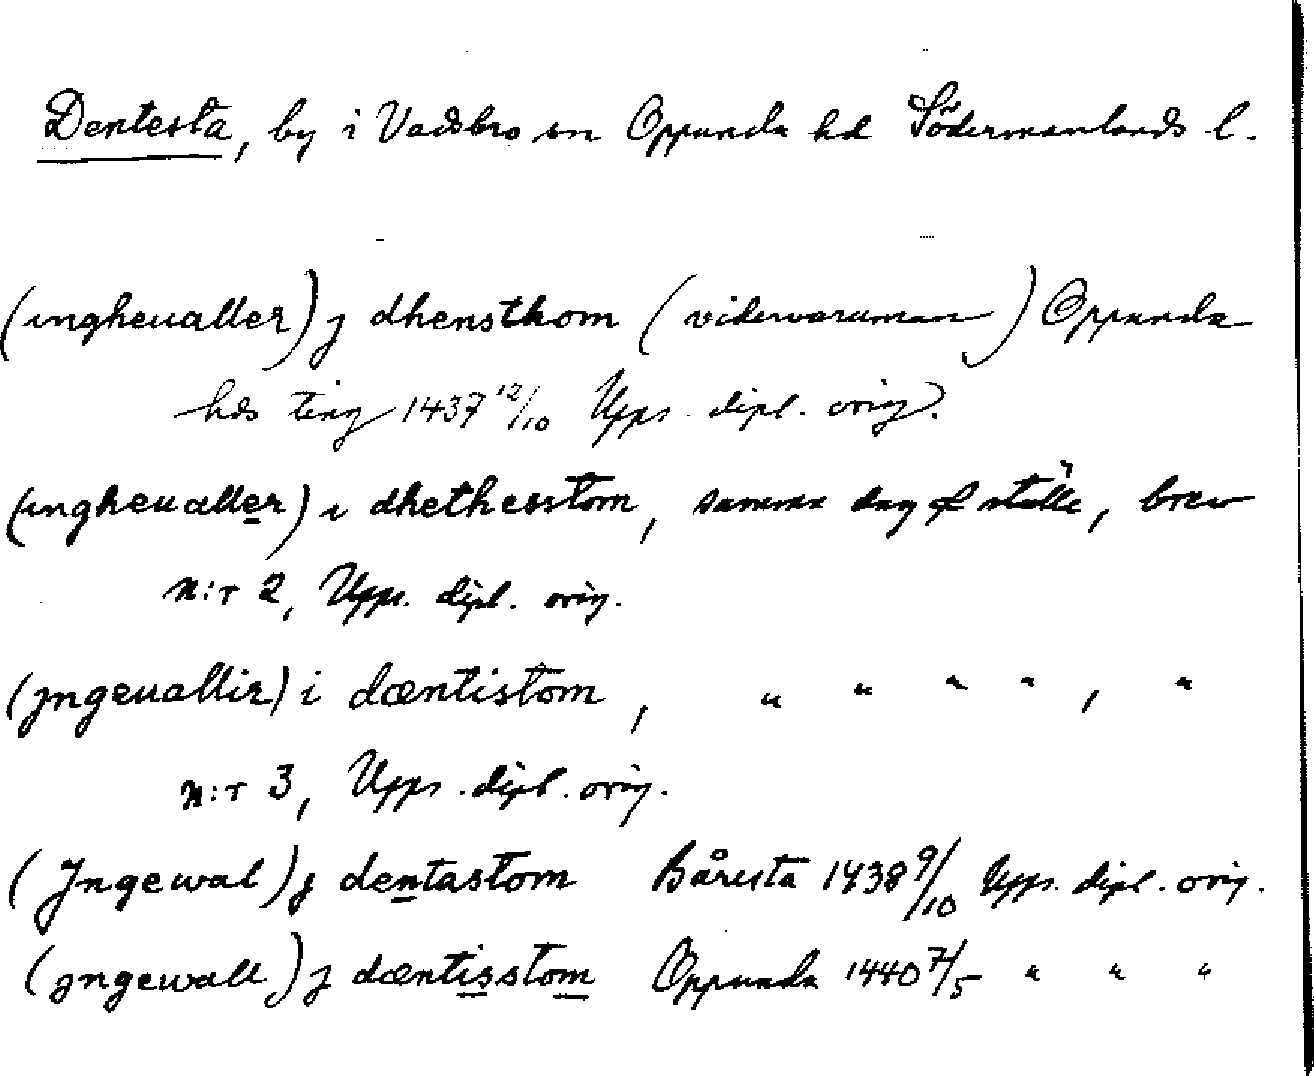 Dentesta, by i Vadsbro sn Oppunda hd Södermanlands l.
(ingheualler) j dhensthom (viderwaruman) Oppunda
hds ting 1437 12/10 Upps. dipl. orig.
(ingheualler) i dhethesstom, samma dag o. ställe, brev
n:r 2, Upps. dipl. orig.
(jngeuallir) i dæntistom, " " " " , "
n:r 3, Upps. dipl. orig.
(Jngewal) j dentastom Bårsta 1438 9/10 Upps. dipl. orig.
(jngewall) j dæntisstom Oppunda 1440 7/5 " " "